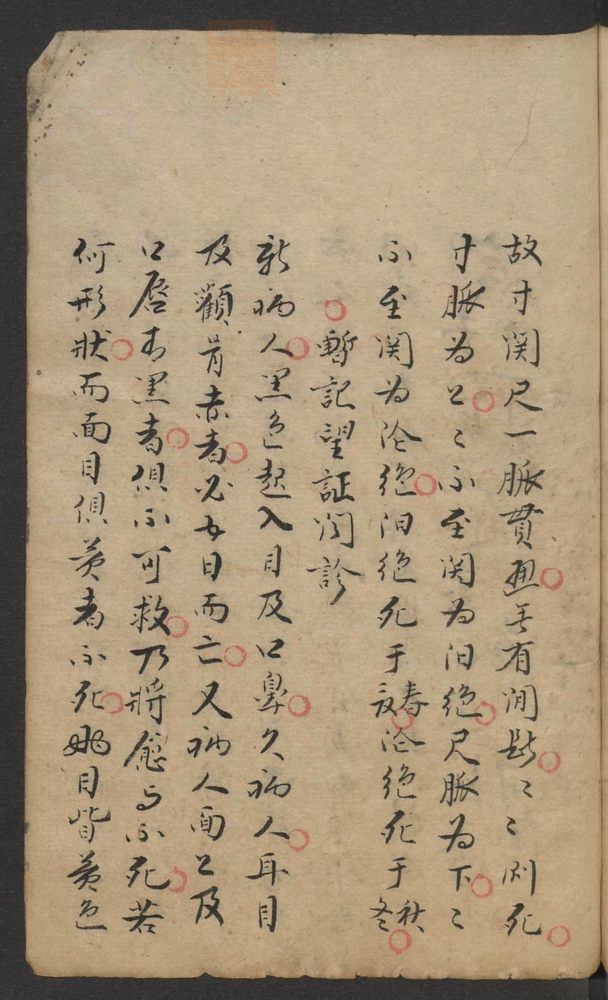 故寸関尺一脈貫通無有間断〻〻則死
寸脈為上〻不至関為阳絶尺脈為下〻
不至関為陰絶阳絶死于春夏陰絶死于秋冬
暫記望証問診
新病人黑色起入目及口鼻久病人耳目
及顴骨赤者必五日而亡又病人面上及
口唇青黑者俱不可救乃將愈与不死若
何形狀而面目俱黃者不死 目眥黃色